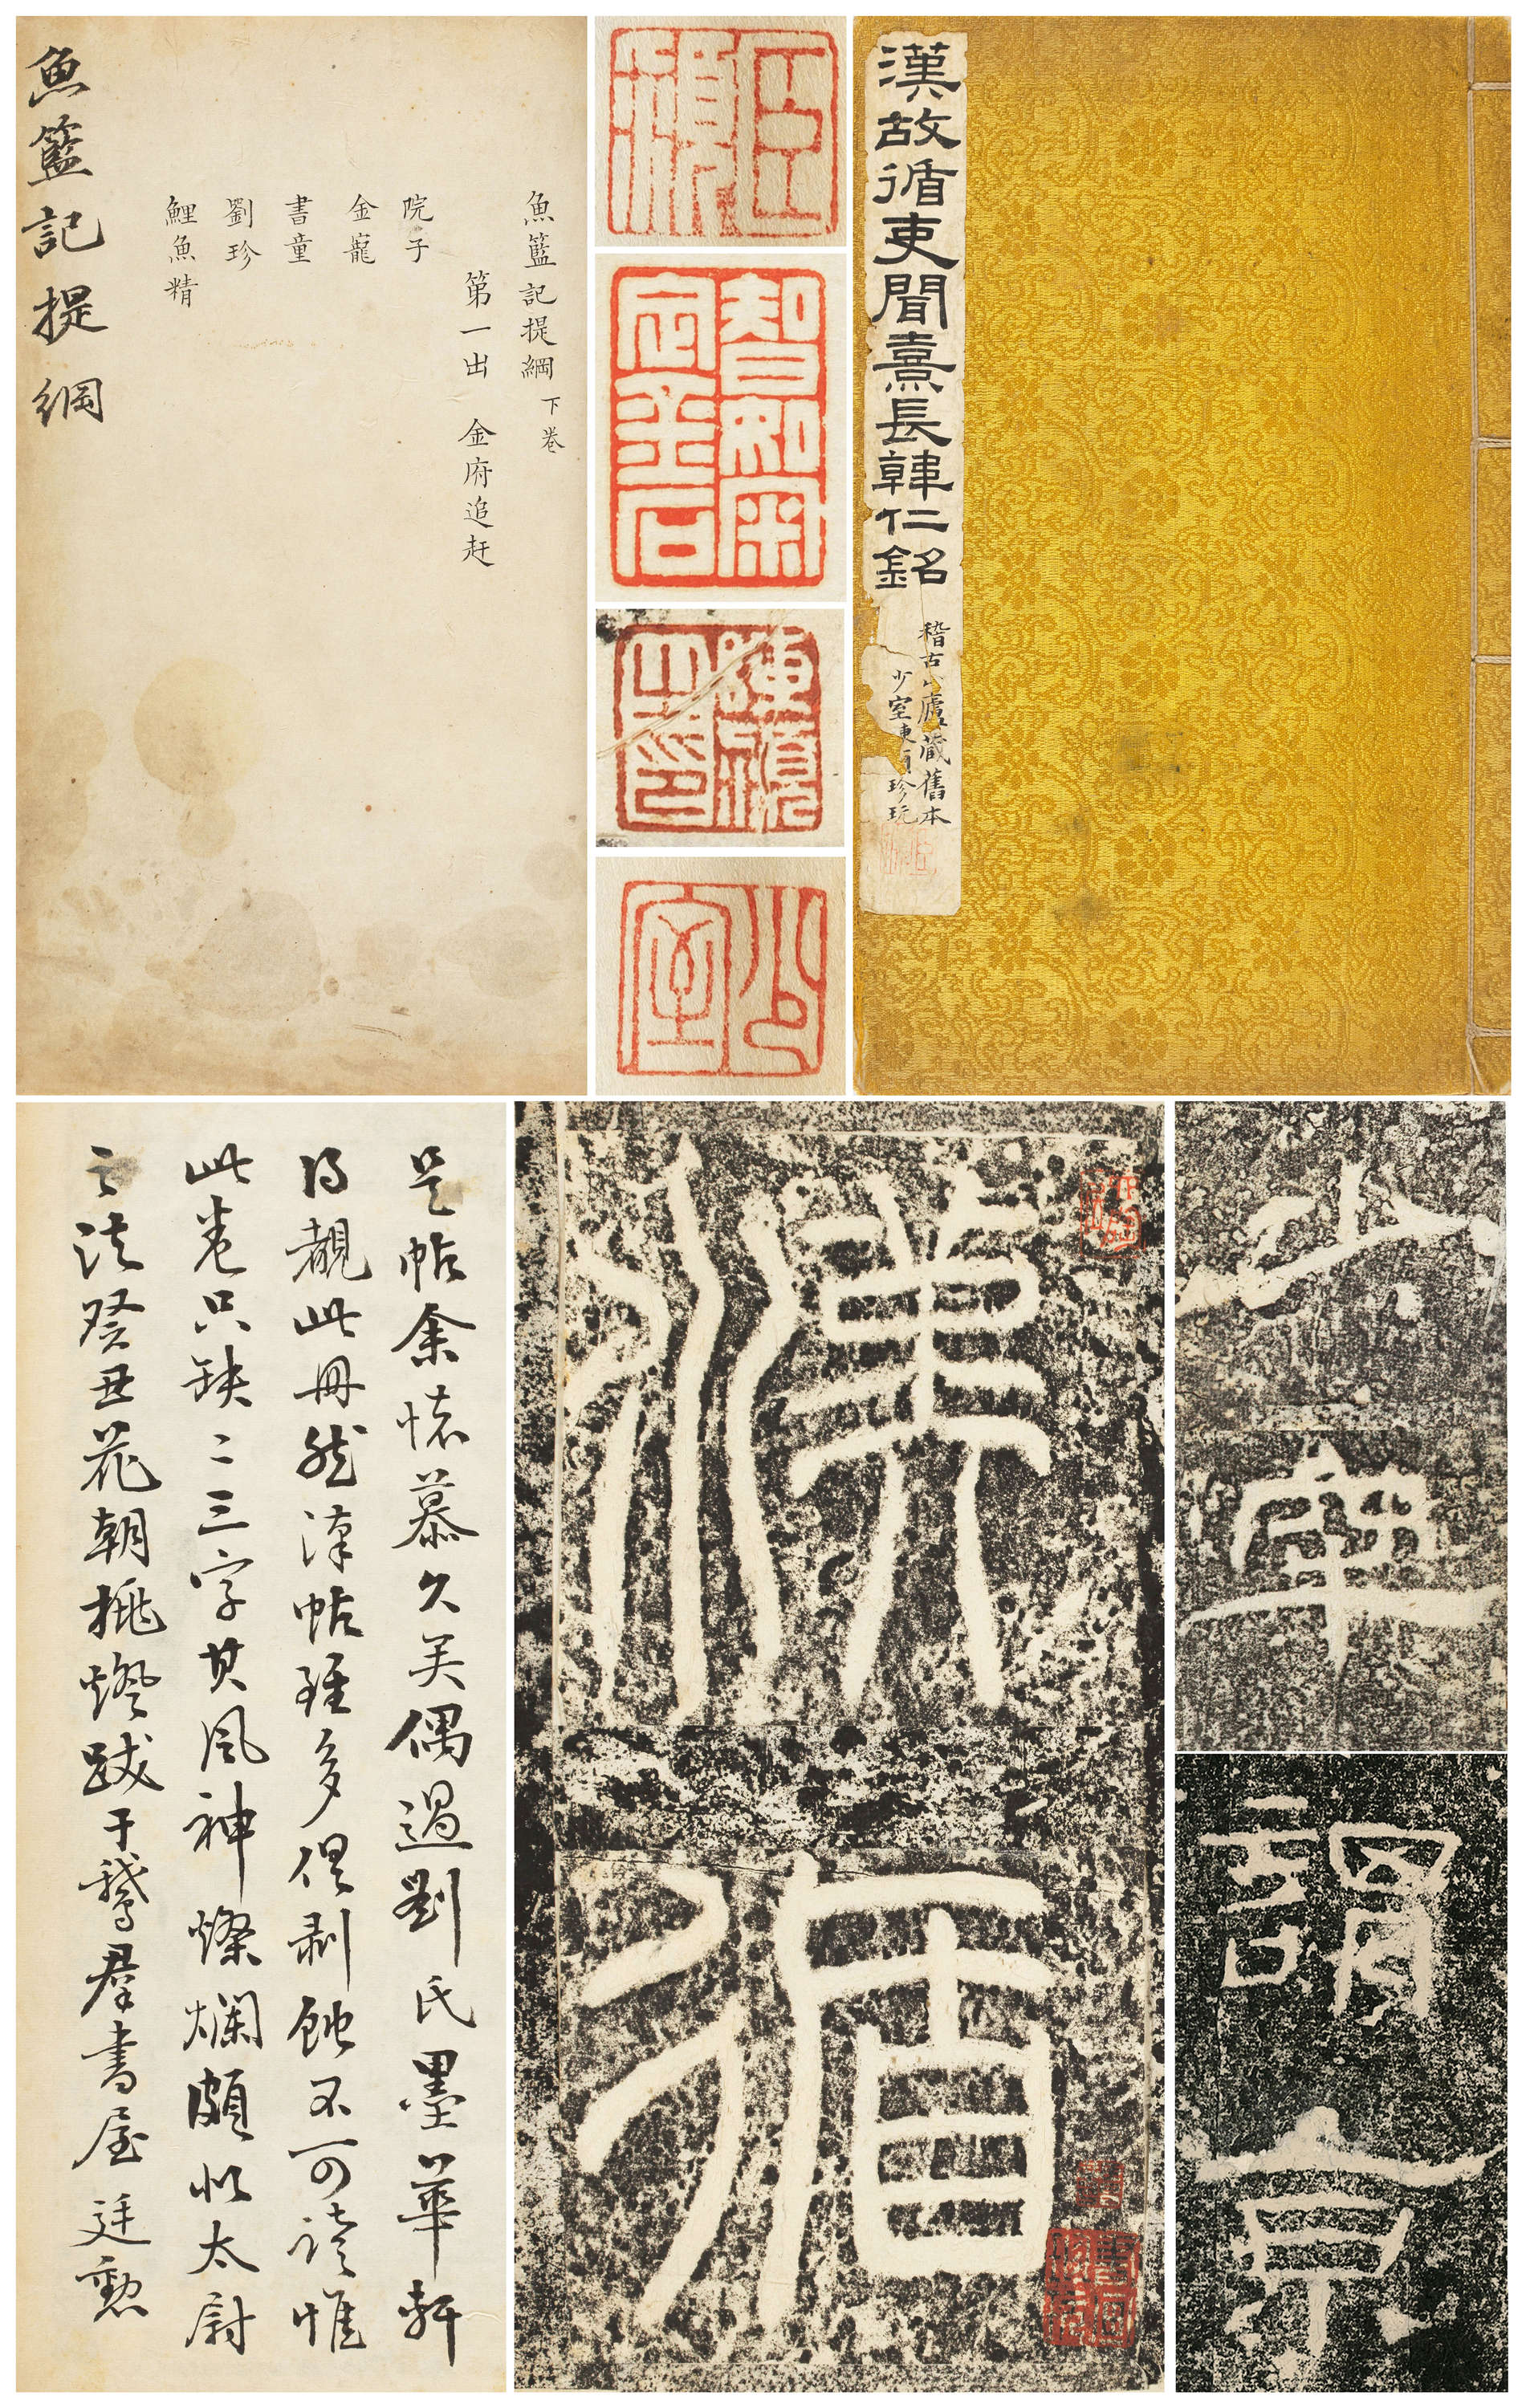 魚籃記提綱 下卷
第一出 金府追赶
院子
金寵
書童
劉珍
鯉魚精
魚籃記提綱
定金石
少室
漢故循吏聞熹長韓仁銘
稽古 廬藏舊本
少室東 珍玩
是帖余懷慕久矣偶過劉氏墨華軒
得觀此冊然漢帖雖多俱剥蝕不可讀惟
此卷只缺二三字其風神燦爛頗似太尉
之法癸丑花朝挑燈跋于鵝羣書屋 廷勳
漢循
謂京